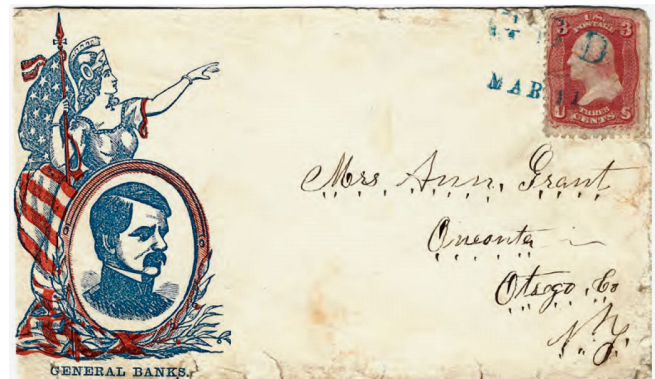 3 U.S. POSTAGE 3
THREE CENTS
U S
MAR 11
Mrs. Ann, Grant
Oneonta
Otsego, Co
N. Y.
GENERAL BANKS.